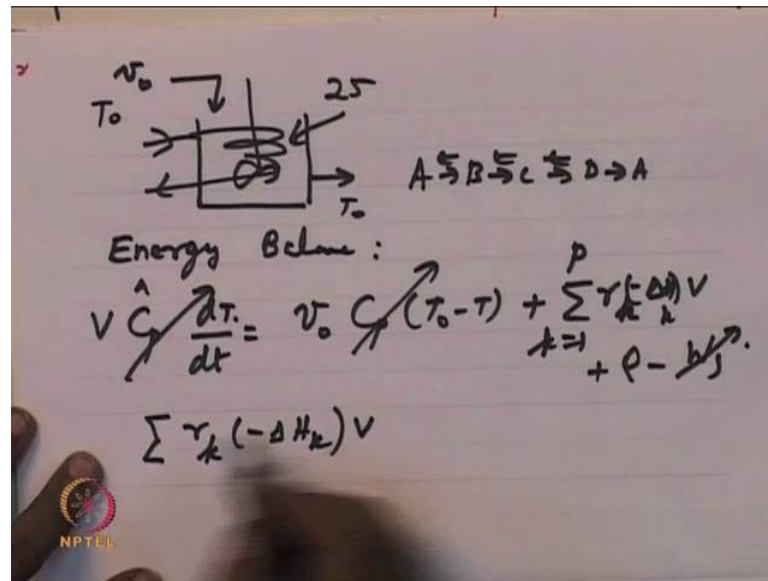 v₀
T₀
25
T₀
A ⇆ B ⇆ C ⇆ D → A
Energy Balance :
V Ĉp dT/dt = v₀ Cp (T₀ - T) + Σ k=1 p rk (-ΔH)k V
+ Q - Ws.
Σ rk (-ΔHk) V
NPTEL